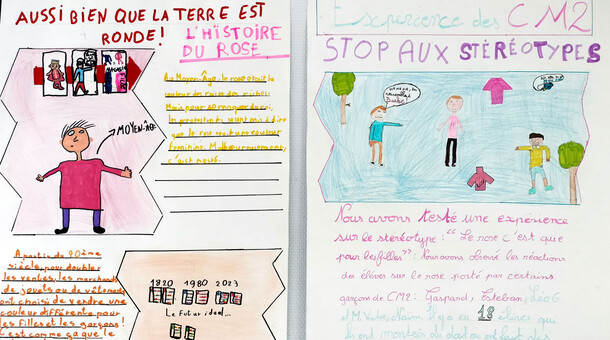 AUSSI BIEN QUE LA TERRE EST
RONDE !
L'HISTOIRE
DU ROSE
MOYEN-ÂGE
Au Moyen-Âge, le rose était la
couleur des
Mais pour
les protestants se sont mis à dire
que le rose était une couleur
féminine. Malheureusement,
c'est resté.
A partir du 20ème
siècle, pour doubler
les ventes, les marchands
de jouets ou de vêtements
ont choisi de vendre une
couleur différente pour
les filles et les garçons !
C'est comme ça que le
1820 1980 2023
Le futur idéal...
Expérience des CM2
STOP AUX STÉRÉOTYPES
Nous avons testé une experience
sur le stéréotype : "Le rose c'est que
pour les filles" : Nous avons observé les réactions
des élèves sur le rose porté par certains
garçon de CM2 : Gaspard, Esteban, Léo G
et M. Vute, Naïm. Il y a eu 18 élèves qui